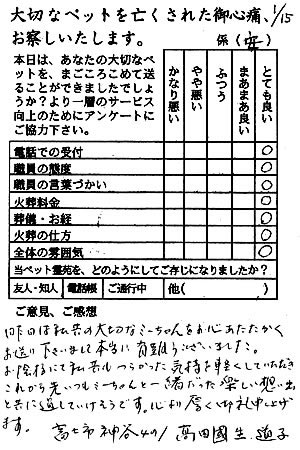 大切なペットを亡くされた御心痛、1/15
お察しいたします。 係(安)
本日は、あなたの大切なペ
ットを、まごころこめて送
ることができましたでしょ
うか?より一層のサービス
向上のためにアンケートに
ご協力下さい。
かなり悪い
やや悪い
ふつう
まあまあ良い
とても良い
電話での受付 ○
職員の態度 ○
職員の言葉づかい ○
火葬料金 ○
葬儀・お経 ○
火葬の仕方 ○
全体の雰囲気 ○
当ペット霊苑を、どのようにしてご存じになりましたか?
友人・知人 電話帳 ご通行中 他( )
ご意見、ご感想
昨日は私共の大切なミーちゃんをお心あたたかく
お送り下さいまして本当に有難うございました。
お陰様にて私共もつらかった気持を軽くしていただき
これから先いつもミーちゃんと一緒だった楽しい想い出
と共に過していけそうです。心より厚く御礼申上げ
ます。 富士市神谷 高田國生